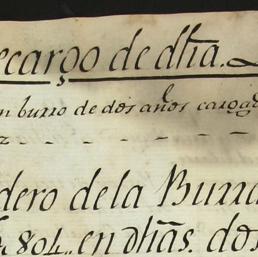 ecargo de dħa.
n burro de dos años
dero de la Burra
804,, en dħas. dos